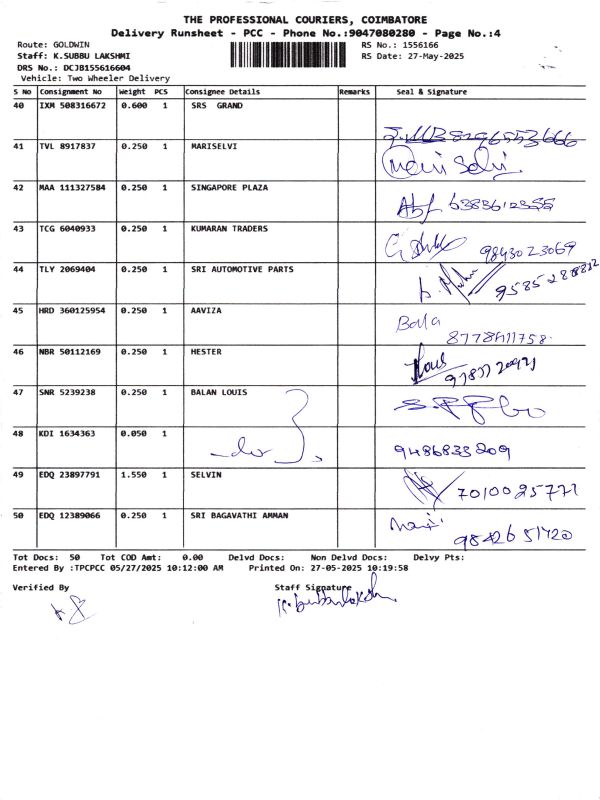 THE PROFESSIONAL COURIERS, COIMBATORE
Delivery Runsheet - PCC - Phone No.:9047080280 - Page No.:4
Route: GOLDWIN RS No.: 1556166
Staff: K.SUBBU LAKSHMI RS Date: 27-May-2025
DRS No.: DCJB155616604
Vehicle: Two Wheeler Delivery
S No Consignment No Weight PCS Consignee Details Remarks Seal & Signature
40 IXM 508316672 0.600 1 SRS GRAND
41 TVL 8917837 0.250 1 MARISELVI Mari Selvi
42 MAA 111327584 0.250 1 SINGAPORE PLAZA
43 TCG 6040933 0.250 1 KUMARAN TRADERS 9843023069
44 TLY 2069404 0.250 1 SRI AUTOMOTIVE PARTS
45 HRD 360125954 0.250 1 AAVIZA Balla
46 NBR 50112169 0.250 1 HESTER
47 SNR 5239238 0.250 1 BALAN LOUIS
48 KDI 1634363 0.050 1 9486833209
49 EDQ 23897791 1.550 1 SELVIN 7010025771
50 EDQ 12389066 0.250 1 SRI BAGAVATHI AMMAN 9842651720
Tot Docs: 50 Tot COD Amt: 0.00 Delvd Docs: Non Delvd Docs: Delvy Pts:
Entered By :TPCPCC 05/27/2025 10:12:00 AM Printed On: 27-05-2025 10:19:58
Verified By Staff Signature
K. Subbulakshmi